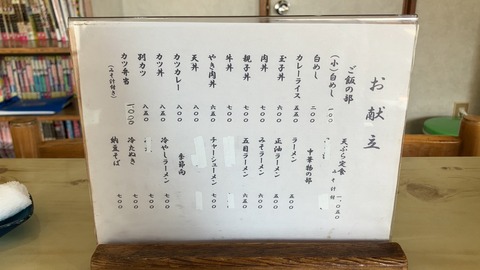 お献立
ご飯の部
(小)白めし 一〇〇
白めし 二〇〇
カレーライス 五五〇
玉子丼 六〇〇
肉丼 七〇〇
親子丼 七〇〇
牛丼 七〇〇
やき肉丼 六五〇
天丼 八〇〇
カツカレー 八〇〇
カツ丼 八五〇
別カツ 八五〇
カツ弁当 一、〇〇〇
(みそ汁付き)
天ぷら定食 一、〇五〇
みそ汁付
中華物の部
ラーメン 五〇〇
正油ラーメン 六〇〇
みそラーメン 六〇〇
五目ラーメン 六五〇
チャーシューメン 七〇〇
季節向
冷やしラーメン 七〇〇
冷たぬき 七〇〇
納豆そば 七〇〇